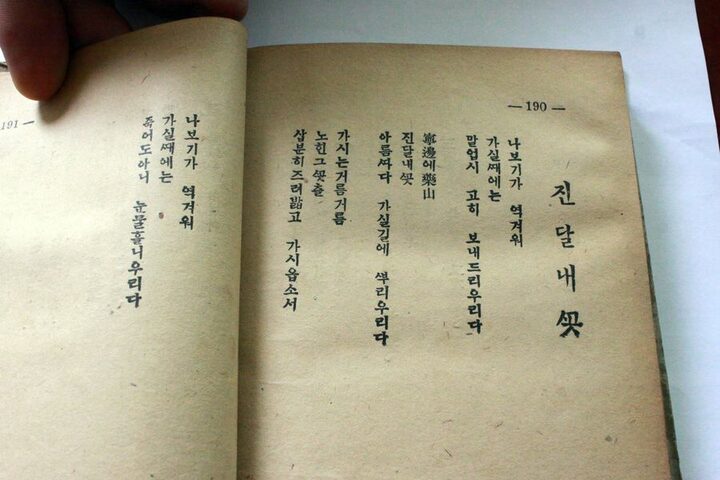 — 190 —
진달내ᄭᅩᆺ
나보기가 역겨워
가실ᄯᅢ에는
말업시 고히 보내드리우리다
寧邊에藥山
진달내ᄭᅩᆺ
아름ᄯᅡ다 가실길에 ᄲᅮ리우리다
가시는거름거름
노힌그ᄭᅩᆺ츨
삽분히즈려밟고 가시옵소서
191 —
나보기가 역겨워
가실ᄯᅢ에는
죽어도아니 눈물흘니우리다